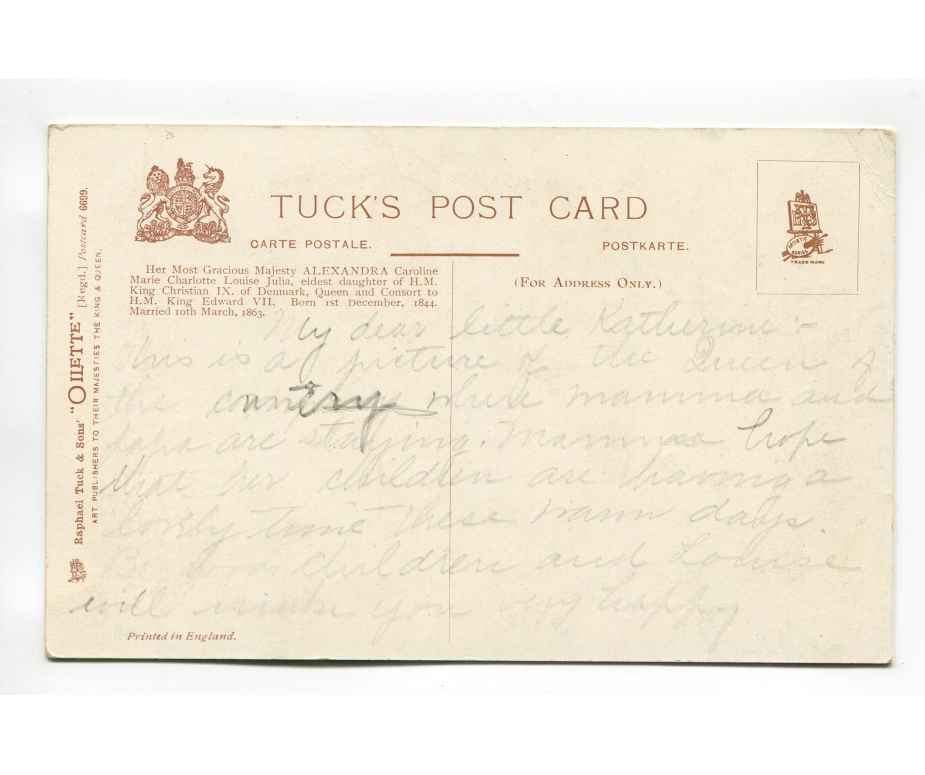 TUCK'S POST CARD
CARTE POSTALE.
POSTKARTE.
TRADE MARK
Her Most Gracious Majesty ALEXANDRA Caroline
Marie Charlotte Louise Julia, eldest daughter of H.M.
King Christian IX. of Denmark, Queen and Consort to
H.M. King Edward VII. Born 1st December, 1844.
Married 10th March, 1863.
(FOR ADDRESS ONLY.)
My dear little Katherine -
this is a picture of the Queen of
the country where mamma and
papa are staying. Mamma hope
that her children are having a
lovely time these warm days.
Be good children and Louise
will make you very happy
Printed in England.
Raphael Tuck & Sons' "OILETTE" [Regd.] Postcard 6699.
ART PUBLISHERS TO THEIR MAJESTIES THE KING & QUEEN.